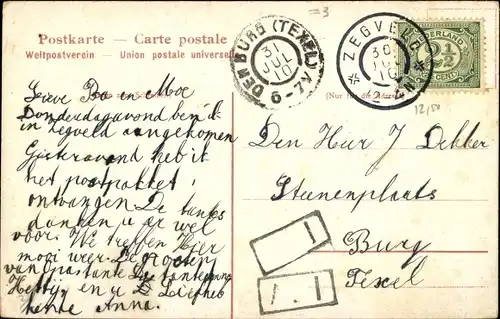 =3
Postkarte - Carte postale
Weltpostverein - Union postale universelle
DEN BURG (TEXEL)
31
JUL
10
ZEGVELD
30
10
NEDERLAND
2½
CENT
12,50
(Nur für die Adresse)
Lieve Pa en Moe
Donderdagavond ben ik
in Zegveld aangekomen
Gisteravond heb ik
het postpakket
ontvangen De tantes
danken u er wel
voor. We treffen Hier
mooi weer. De groeten
van
Hetty, en u L Liefheb
hende Anna.
Den Heer J Dekker
Steenenplaats
Burg
Texel
1
1.1